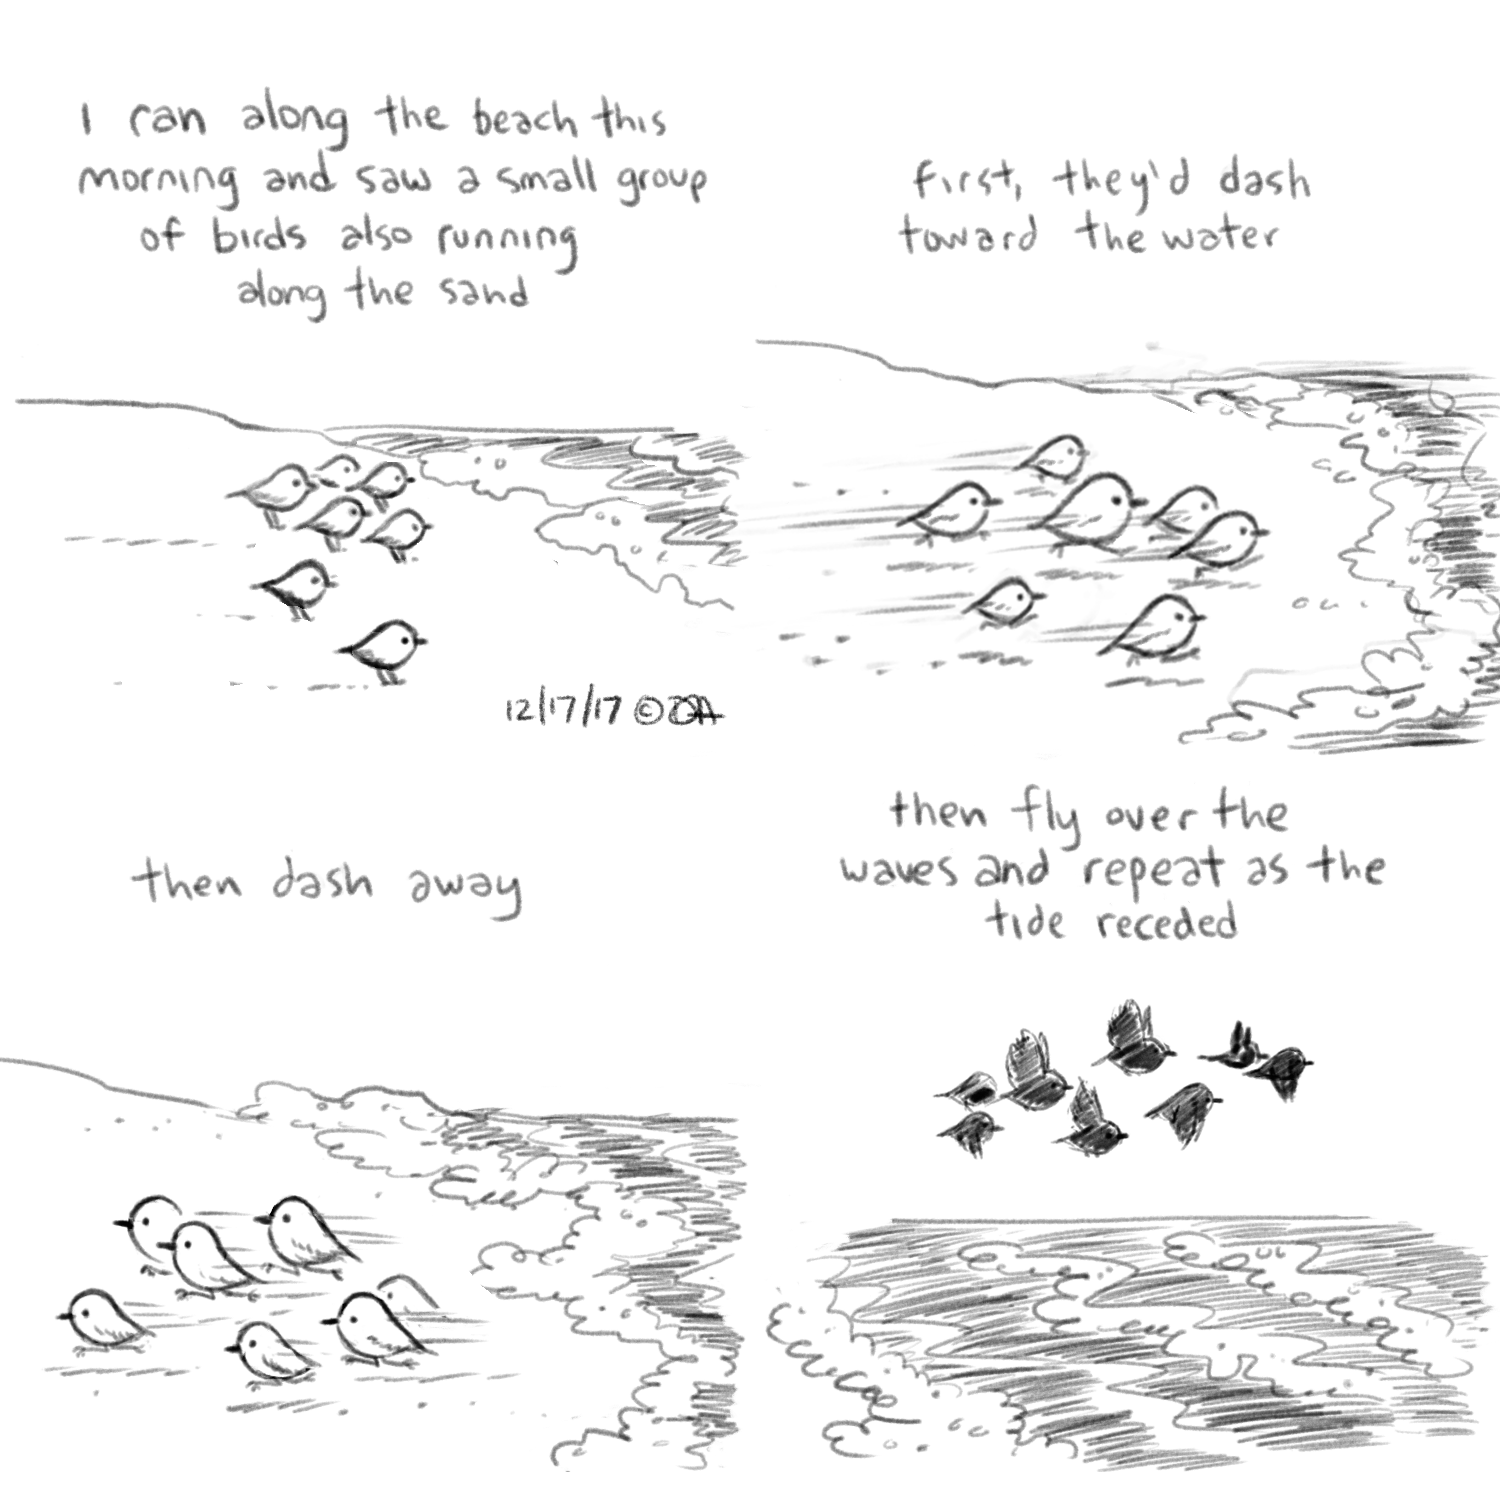 I ran along the beach this
morning and saw a small group
of birds also running
along the sand
12/17/17 ©
first, they'd dash
toward the water
then dash away
then fly over the
waves and repeat as the
tide receded